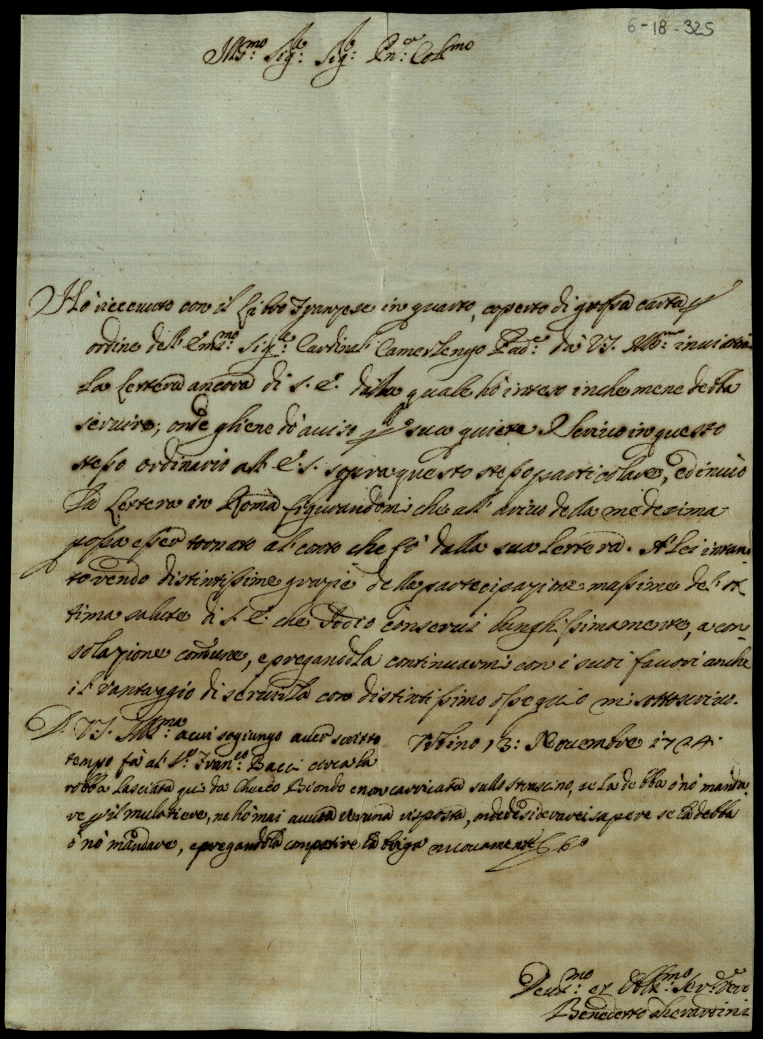 6-18-325
Ill:mo Sig:re Sig:re Pn:e Col:mo
Hò riceuuto con il Libro Franzese in quarto, coperto di grossa carta p
ordine dell' Em:mo Sig:re Cardinal Camerlengo Pad:e da VS. Ill:ma inuiatomi
La Lettera ancora di S. E. dalla quale hò inteso in che mene debba
seruire; onde gliene dò auiso p sua quiete. Scriuo in questo
stesso ordinario all' E. S. sopra questo stesso particolare, ed inuio
la Lettera in Roma figurandomi che all' ariuo della medesima
possa esser tornato al conto che fà dalla sua Lettera. A Lei intan
to rendo distintissime grazie della partecipazione massime dell' ot
tima salute di S. E. che Iddio conserui lunghissimamente, a con
solazione comune, e pregandola continuarmi con i suoi fauori anche
il vantaggio di seruirla con distintissimo ossequio mi sottoscriuo.
D. VS. Ill:ma a cui sogiungo auer scritto Vrbino 13: Nouembre 1724.
tempo fà al S:r Fran:co Bacci circa la
robba lasciata qui da Checco Biondo e non caricata sullo strascino, se la debba ò nò manda
re p il mulatiere, ne hò mai auuta veruna risposta, onde desidererei sapere se la debba
ò nò mandare, e pregandola compatire la briga nuouamente
Deu:mo et Obl:mo Ser:re Vero
Benedetto